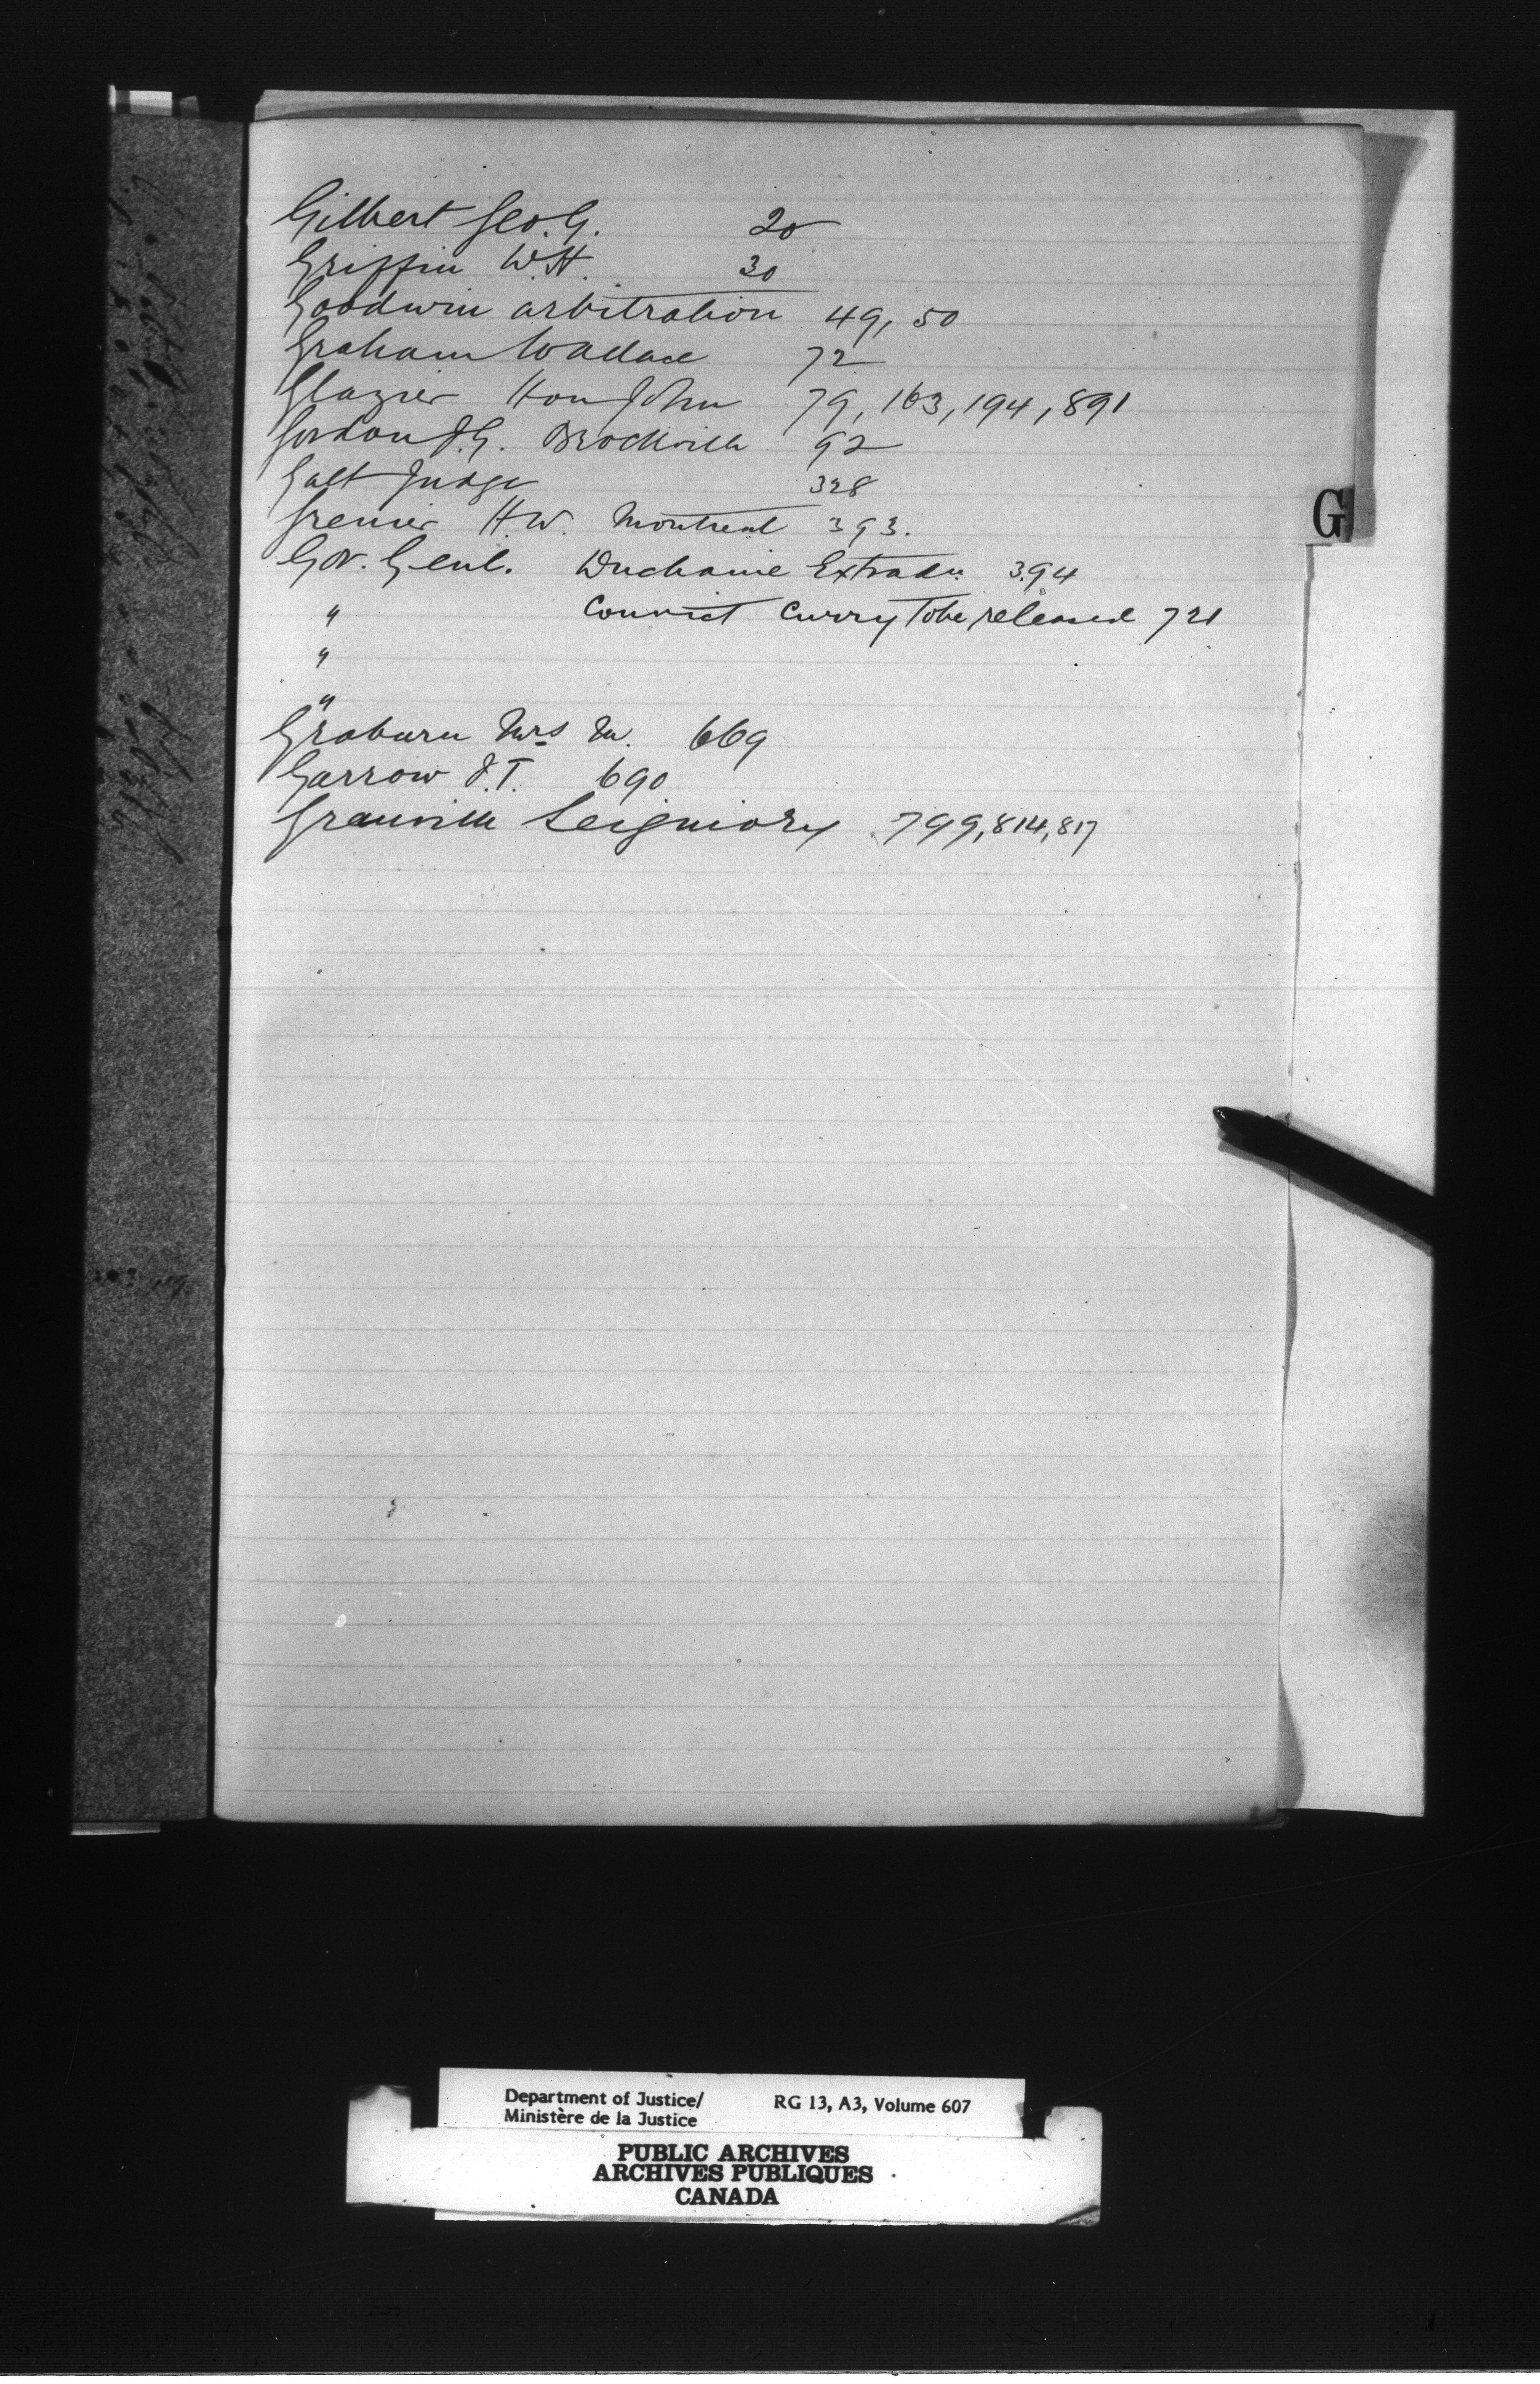 Gilbert Geo. G. 20
Griffin W.H. 30
Goodwin arbitration 49, 50
Graham Wallace 72
Glazier Hon John 79, 163, 194, 891
Gordon J.G. Brockville 92
Galt Judge 328
Grenier H.W. Montreal 393.
Gov. Genl. Duchaine Extradn 394
" Convict Curry to be released 721
"
"
Graburn Mrs M. 669
Garrow J.T. 690
Granville Seigniory 799, 814, 817
G
Department of Justice/ RG 13, A3, Volume 607
Ministère de la Justice
PUBLIC ARCHIVES
ARCHIVES PUBLIQUES
CANADA